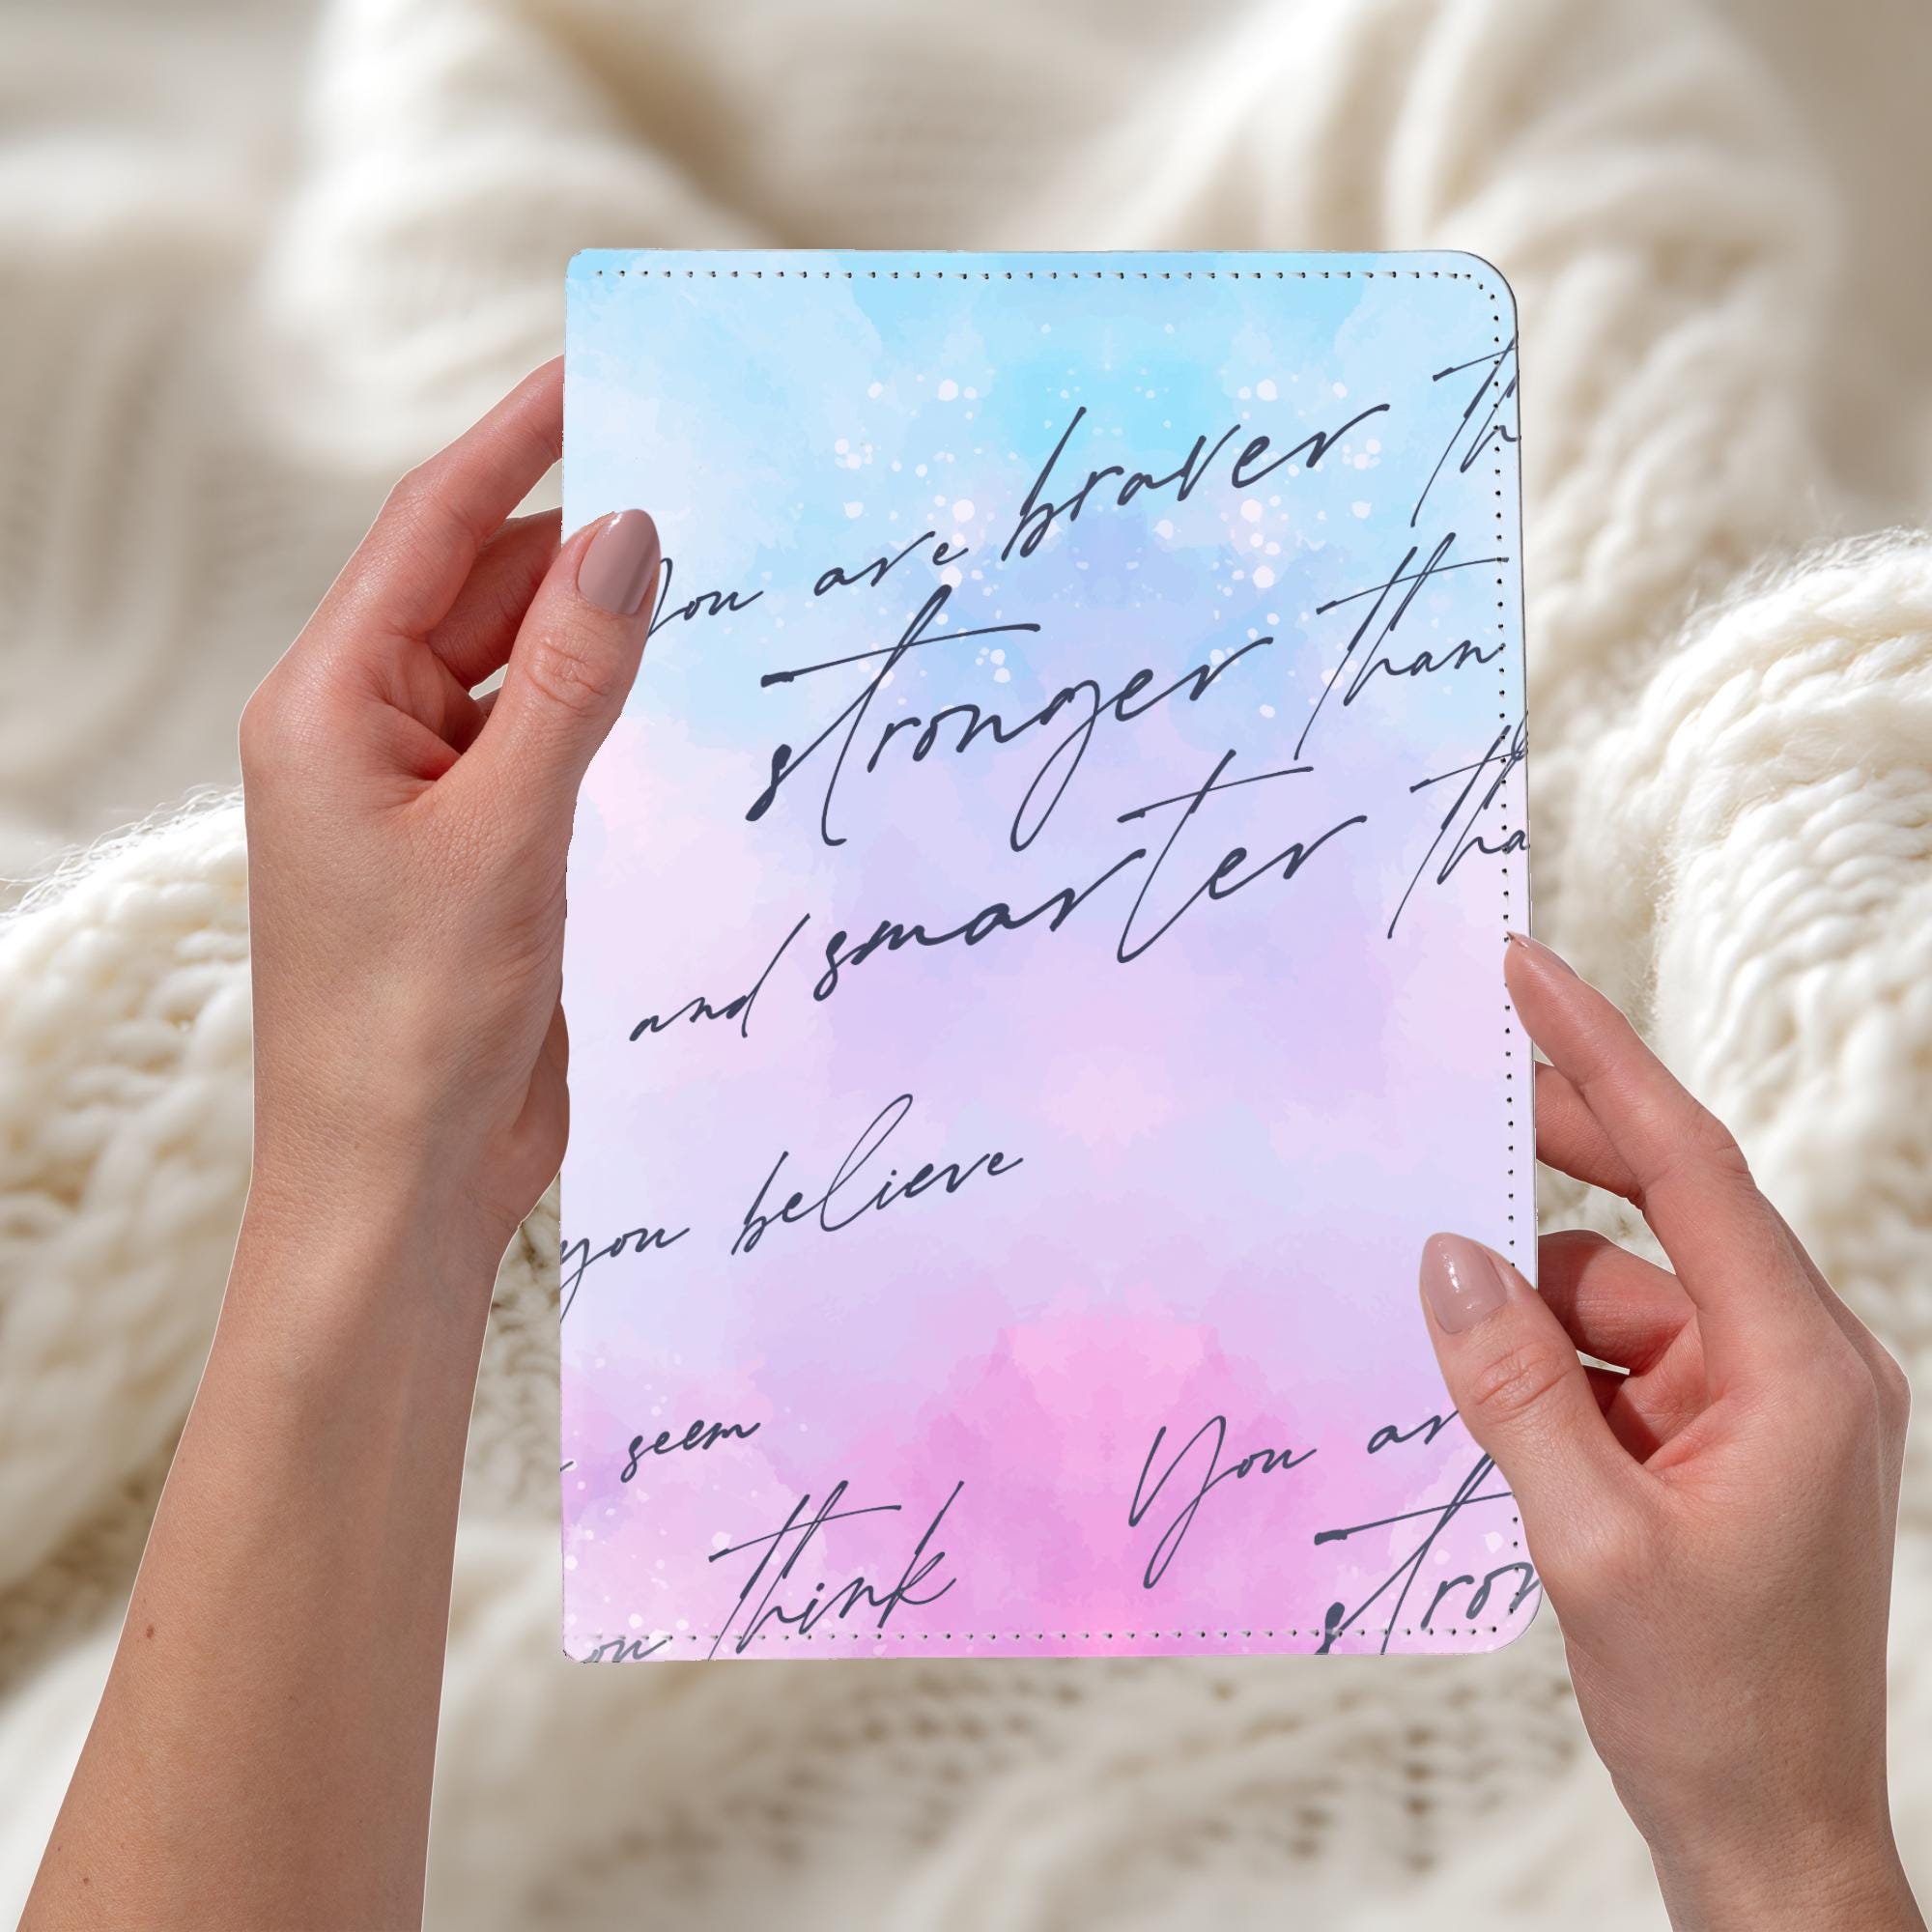 You are braver th
stronger than
and smarter tha
you believe
seem
think
You ar
stron